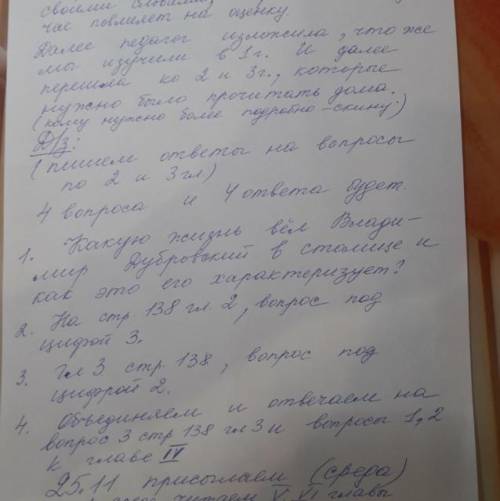 своими словами,
час повлияет на оценку.
Далее педагог изложила, что же
мы изучили в 1г. И далее
перешла ко 2 и 3г., которые
нужно было прочитать дома.
(кому нужно более подробно-скину)
Д/з:
(пишем ответы на вопросы
по 2 и 3гл)
4 вопроса и 4 ответа будет.
1. Какую жизнь вёл Влади-
мир Дубровский в столице и
как это его характеризует?
2. На стр 138 гл 2, вопрос под
цифрой 3.
3. Гл 3 стр. 138, вопрос под
цифрой 2.
4. Объединяем и отвечаем на
вопрос 3 стр 138 гл 3 и вопросы 1,2
к главе IV
25.11 присылаем (среда)
читаем V, VI главы